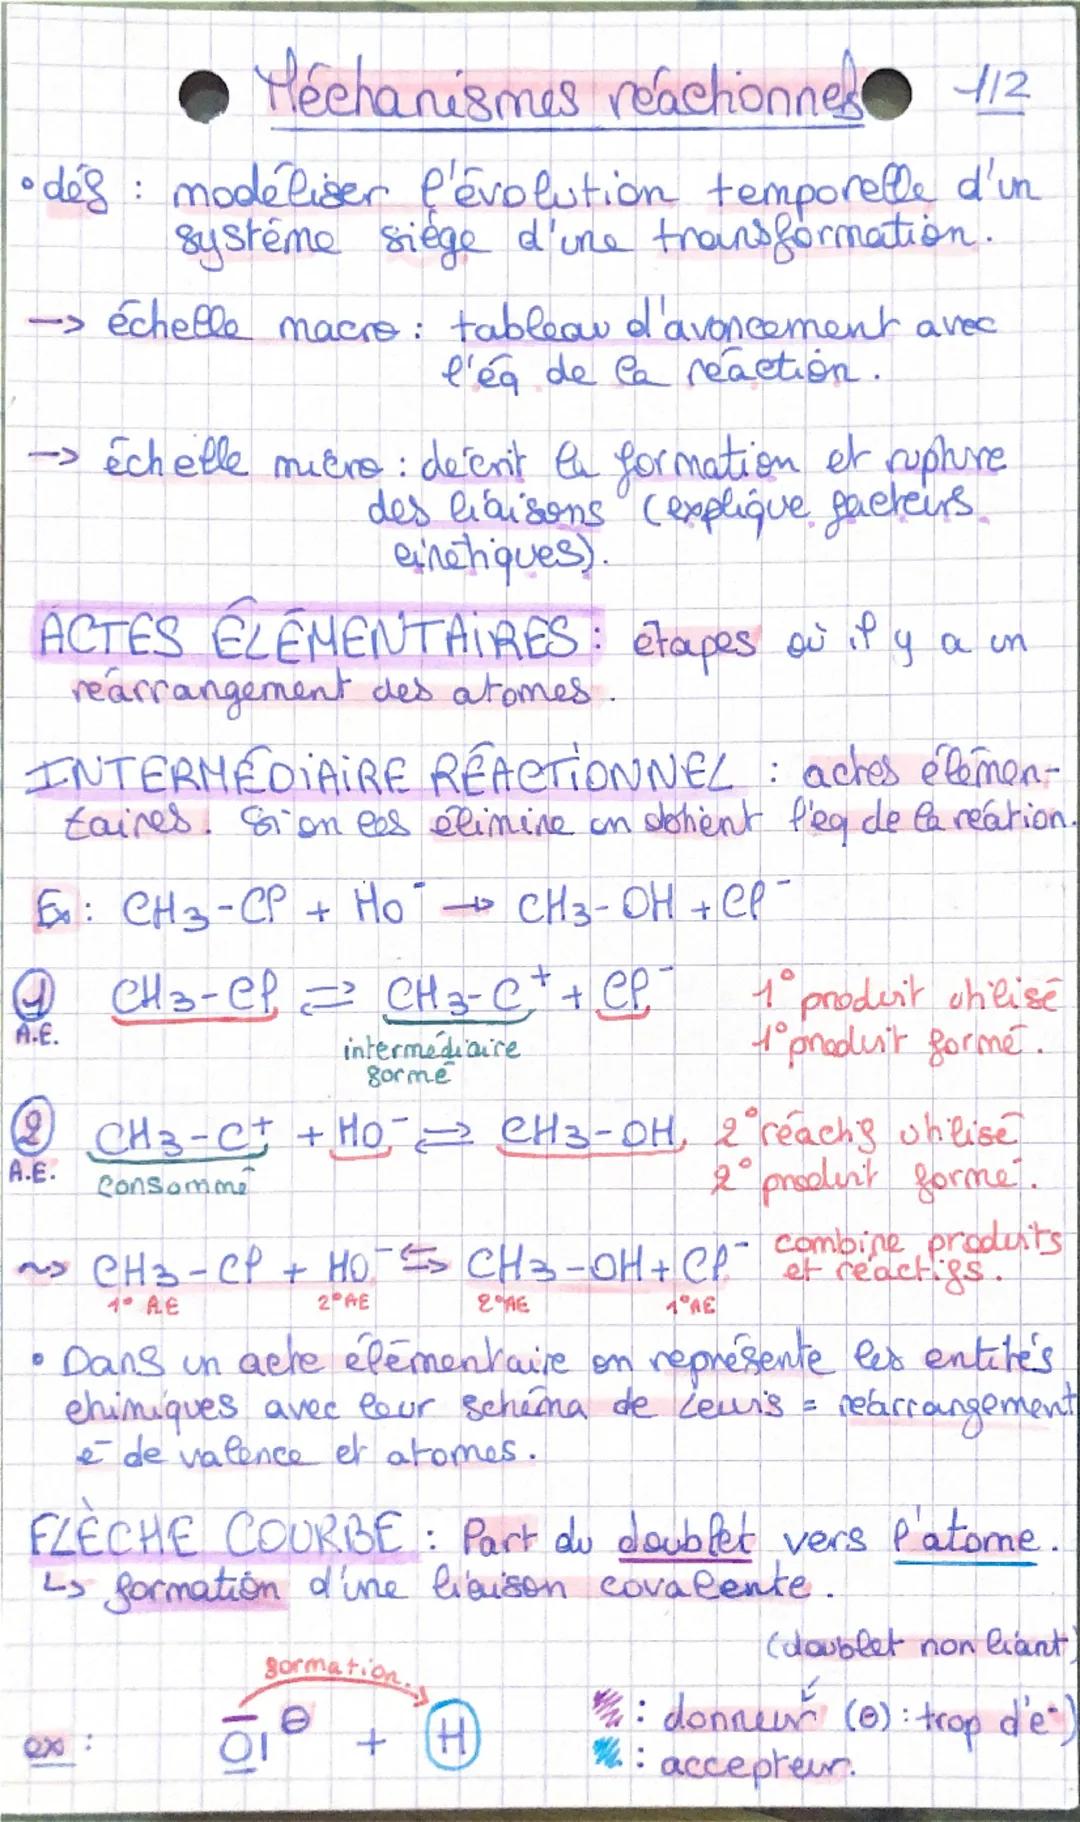 Méchanismes réactionnels 1/2
• déf : modéliser l'évolution temporelle d'un
système siège d'une transformation.
-> échelle macro : tableau d'avancement avec
l'éq de la réaction.
-> échelle micro : décrit la formation et rupture
des liaisons (explique facteurs
cinétiques).
ACTES ÉLÉMENTAIRES : étapes où il y a un
réarrangement des atomes.
INTERMÉDIAIRE RÉACTIONNEL : actes élémen-
taires. Si on les élimine on obtient l'éq de la réation.
Ex : CH3-Cl + HO⁻ → CH3-OH + Cl⁻
① CH3-Cl ⇌ CH3-C⁺ + Cl⁻ 1° produit utilisé
A.E. intermédiaire formé 1° produit formé.
② CH3-C⁺ + HO⁻ ⇌ CH3-OH 2° réactif utilisé
A.E. consommé 2° produit formé.
~> CH3-Cl + HO⁻ ⇆ CH3-OH + Cl⁻ combine produits
et réactifs.
1° AE 2° AE 2° AE 1° AE
• Dans un acte élémentaire on représente les entités
chimiques avec leur schéma de Lewis = réarrangement
e⁻ de valence et atomes.
FLÈCHE COURBE : Part du doublet vers l'atome.
↳ formation d'une liaison covalente.
(doublet non liant)
formation.
ex : O ⊖ + H : donneur (⊖) : trop d'e⁻)
: accepteur.